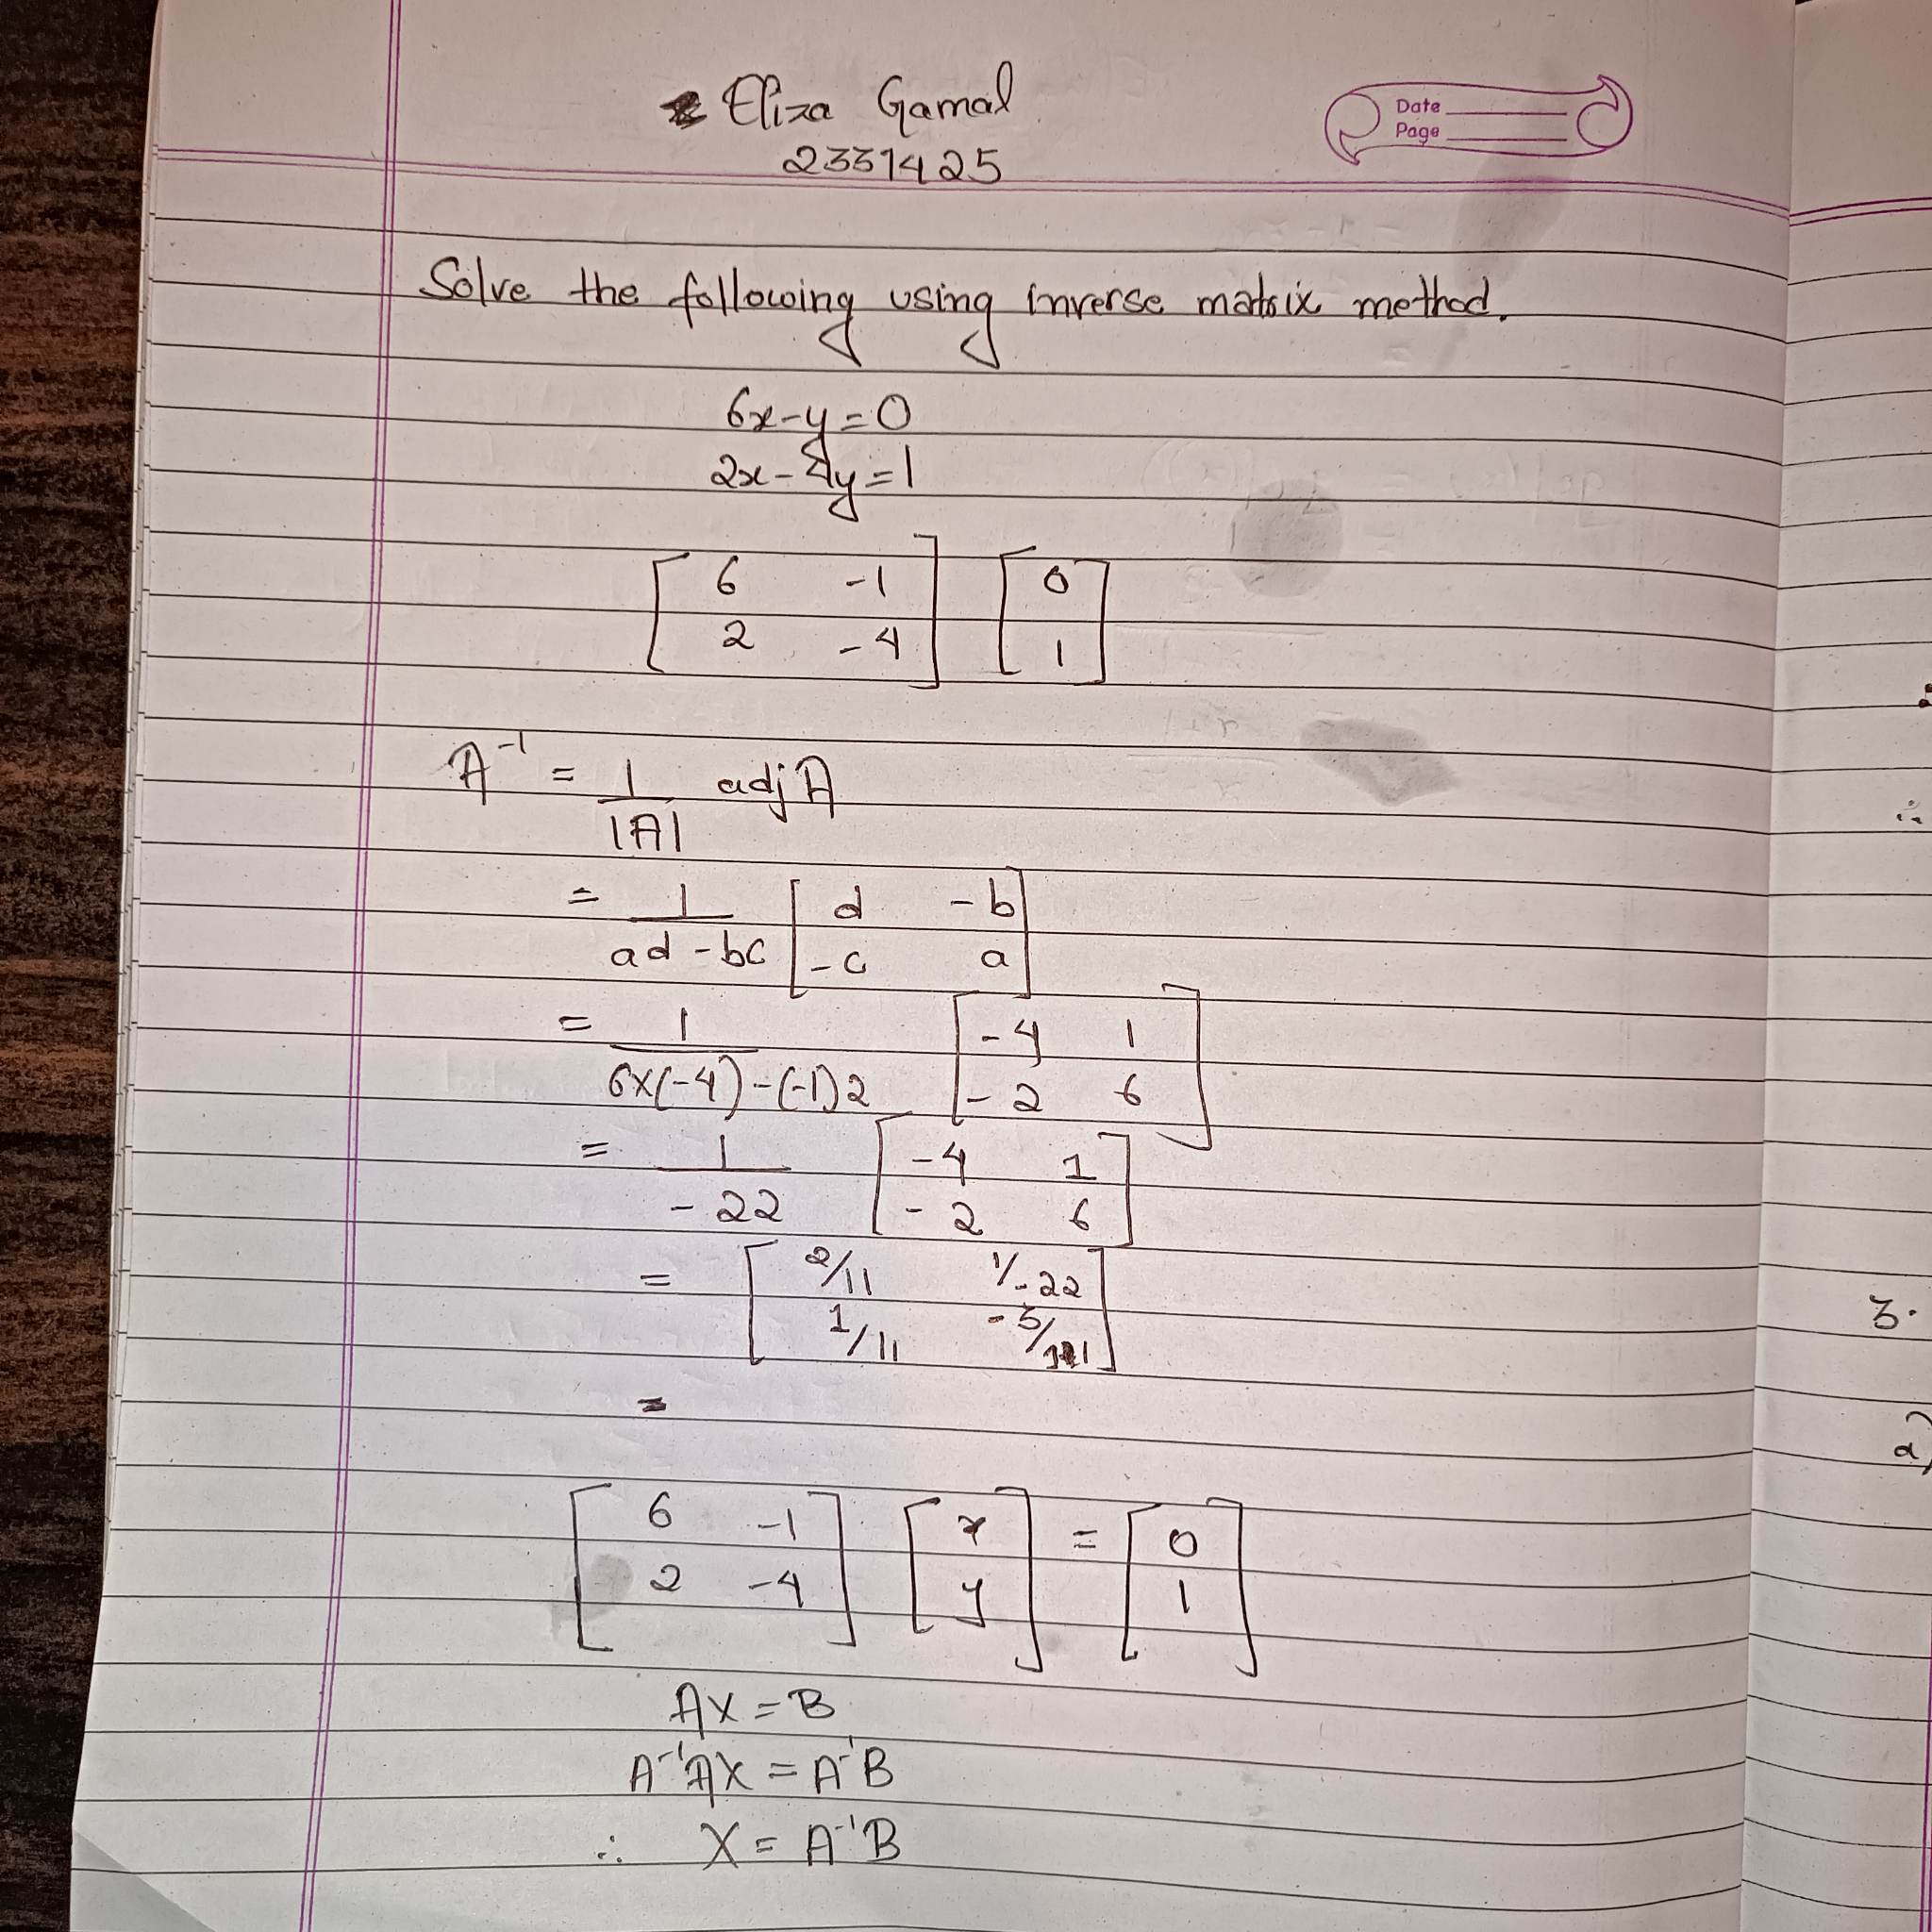 Eliza Gamal
2331425
Date
Page
Solve the following using inverse matrix method.
6x-y=0
2x-4y=1
[6 -1] [0]
[2 -4] [1]
A⁻¹ = 1/|A| adj A
= 1/(ad-bc) [d -b]
[-c a]
= 1/(6×(-4)-(-1)2) [-4 1]
[-2 6]
= 1/-22 [-4 1]
[-2 6]
= [2/11 1/-22]
[1/11 -3/11]
=
[6 -1] [x] = [0]
[2 -4] [y] [1]
AX=B
A⁻¹AX = A⁻¹B
∴ X = A⁻¹B
3.
2)